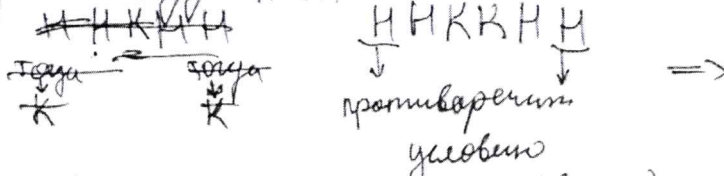 Н Н К Н Н    Н Н К К Н Н
тогда    тогда    =>
К    К
противаречит
условию